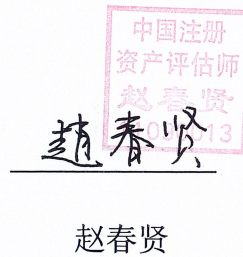 中国注册
资产评估师
赵春贤
趙春贤
赵春贤